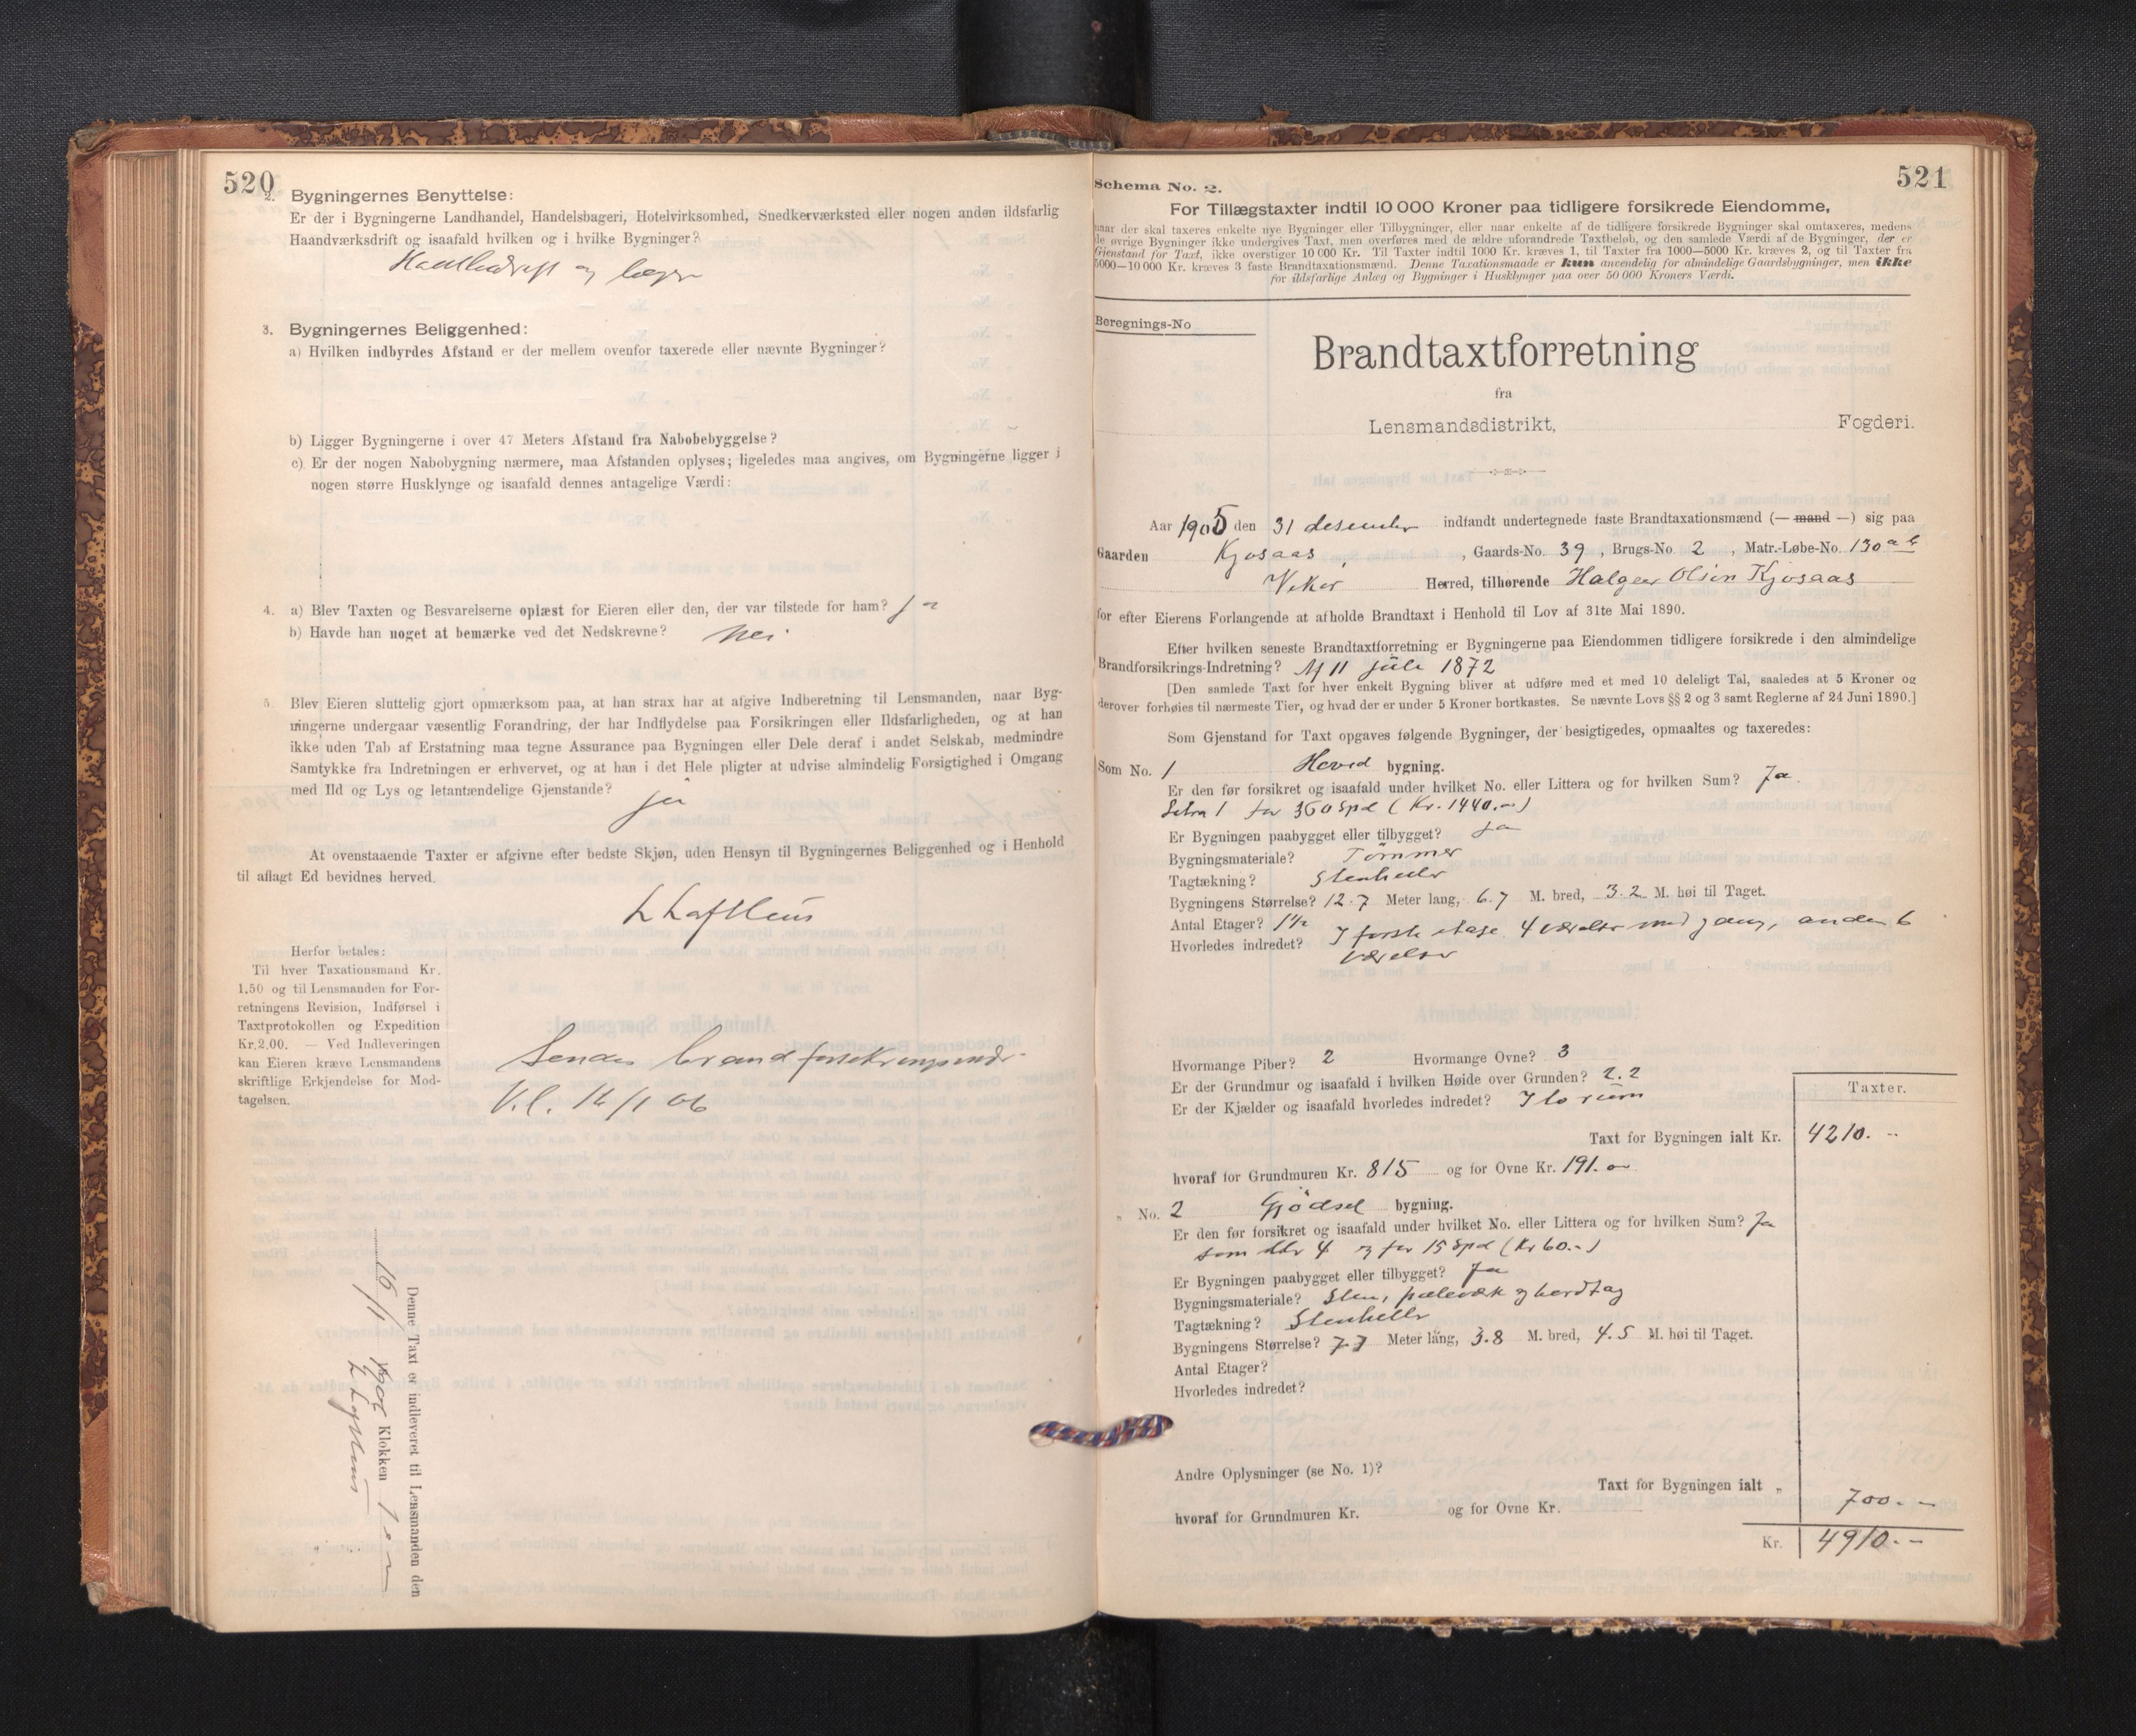 520
2. Bygningernes Benyttelse:
Er der i Bygningerne Landhandel, Handelsbageri, Hotelvirksomhed, Snedkerværksted eller nogen anden ildsfarlig
Haandværksdrift og isaafald hvilken og i hvilke Bygninger?
og
3. Bygningernes Beliggenhed:
a) Hvilken indbyrdes Afstand er der mellem ovenfor taxerede eller nævnte Bygninger?
b) Ligger Bygningerne i over 47 Meters Afstand fra Nabobebyggelse?
c) Er der nogen Nabobygning nærmere, maa Afstanden oplyses; ligeledes maa angives, om Bygningerne ligger i
nogen større Husklynge og isaafald dennes antagelige Værdi:
4. a) Blev Taxten og Besvarelserne oplæst for Eieren eller den, der var tilstede for ham? ja
b) Havde han noget at bemærke ved det Nedskrevne? Nei
5. Blev Eieren sluttelig gjort opmærksom paa, at han strax har at afgive Indberetning til Lensmanden, naar Byg-
ningerne undergaar væsentlig Forandring, der har Indflydelse paa Forsikringen eller Ildsfarligheden, og at han
ikke uden Tab af Erstatning maa tegne Assurance paa Bygningen eller Dele deraf i andet Selskab, medmindre
Samtykke fra Indretningen er erhvervet, og at han i det Hele pligter at udvise almindelig Forsigtighed i Omgang
med Ild og Lys og letantændelige Gjenstande? ja
At ovenstaaende Taxter er afgivne efter bedste Skjøn, uden Hensyn til Bygningernes Beliggenhed og i Henhold
til aflagt Ed bevidnes herved.
L Lofthus
Herfor betales:
Til hver Taxationsmand Kr.
1.50 og til Lensmanden for For-
retningens Revision, Indførsel i
Taxtprotokollen og Expedition
Kr. 2.00. — Ved Indleveringen
kan Eieren kræve Lensmandens
skriftlige Erkjendelse for Mod-
tagelsen.
Sendes brandforsikringsindr.
V.l. 16/1 06
Denne Taxt er indleveret til Lensmanden den
16/1 1906 Klokken 1 em
L Lofthus
521
Schema No. 2.
For Tillægstaxter indtil 10 000 Kroner paa tidligere forsikrede Eiendomme,
naar der skal taxeres enkelte nye Bygninger eller Tilbygninger, eller naar enkelte af de tidligere forsikrede Bygninger skal omtaxeres, medens
de øvrige Bygninger ikke undergives Taxt, men overføres med de ældre uforandrede Taxtbeløb, og den samlede Værdi af de Bygninger, der er
Gjenstand for Taxt, ikke overstiger 10 000 Kr. Til Taxter indtil 1000 Kr. kræves 1, til Taxter fra 1000—5000 Kr. kræves 2, og til Taxter fra
5000—10 000 Kr. kræves 3 faste Brandtaxationsmænd. Denne Taxationsmaade er kun anvendelig for almindelige Gaardsbygninger, men ikke
for ildsfarlige Anlæg og Bygninger i Husklynger paa over 50 000 Kroners Værdi.
Beregnings-No
Brandtaxtforretning
fra
Lensmandsdistrikt, Fogderi.
Aar 1905 den 31 desember indfandt undertegnede faste Brandtaxationsmænd (— mand —) sig paa
Gaarden Kjosaas, Gaards-No. 39, Brugs-No. 2, Matr.-Løbe-No. 130 a b
Vikør Herred, tilhørende Halgeer Olsen Kjosaas
for efter Eierens Forlangende at afholde Brandtaxt i Henhold til Lov af 31te Mai 1890.
Efter hvilken seneste Brandtaxtforretning er Bygningerne paa Eiendommen tidligere forsikrede i den almindelige
Brandforsikrings-Indretning? Af 11 juli 1872
[Den samlede Taxt for hver enkelt Bygning bliver at udføre med et med 10 deleligt Tal, saaledes at 5 Kroner og
derover forhøies til nærmeste Tier, og hvad der er under 5 Kroner bortkastes. Se nævnte Lovs §§ 2 og 3 samt Reglerne af 24 Juni 1890.]
Som Gjenstand for Taxt opgaves følgende Bygninger, der besigtigedes, opmaaltes og taxeredes:
Som No. 1 Hoved bygning.
Er den før forsikret og isaafald under hvilket No. eller Littera og for hvilken Sum? Ja
Litra 1 for 360 Spd (Kr. 1440.-)
Er Bygningen paabygget eller tilbygget? ja
Bygningsmateriale? Tømmer
Tagtækning? Stenheller
Bygningens Størrelse? 12.7 Meter lang, 6.7 M. bred, 3.2 M. høi til Taget.
Antal Etager? 1½
Hvorledes indredet? I første etage 4 værelser med gang, anden 6
værelser
Hvormange Piber? 2 Hvormange Ovne? 3
Er der Grundmur og isaafald i hvilken Høide over Grunden? 2.2
Er der Kjælder og isaafald hvorledes indredet? I to rum
Taxter.
Taxt for Bygningen ialt Kr. 4210.--
hvoraf for Grundmuren Kr. 815 og for Ovne Kr. 191.00
„ No. 2 Gjødsel bygning.
Er den før forsikret og isaafald under hvilket No. eller Littera og for hvilken Sum? Ja
som litr 4 og for 15 Spd (Kr 60.-)
Er Bygningen paabygget eller tilbygget? Ja
Bygningsmateriale? Sten, pæleværk og bordtag
Tagtækning? Stenheller
Bygningens Størrelse? 7.7 Meter lang, 3.8 M. bred, 4.5 M. høi til Taget.
Antal Etager?
Hvorledes indredet?
Andre Oplysninger (se No. 1)?
Taxt for Bygningen ialt „ 700.--
hvoraf for Grundmuren Kr. og for Ovne Kr.
Kr. 4910.--